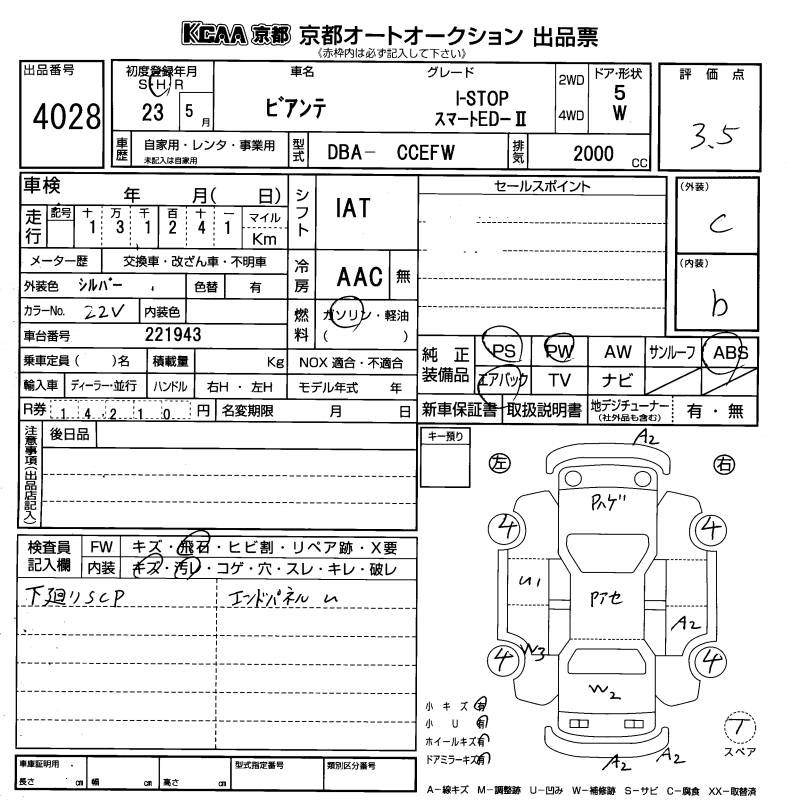 KCAA 京都 京都オートオークション 出品票
《赤枠内は必ず記入して下さい》
出品番号
4028
初度登録年月
S・H・R
23 5 月
車名
ビアンテ
グレード
I-STOP
スマートEDーⅡ
2WD
4WD
ドア・形状
5
W
評価点
3.5
車歴 自家用・レンタ・事業用
未記入は自家用
型式 DBA- CCEFW
排気 2000 CC
車検 年 月( 日)
走行 記号 十 万 千 百 十 一 マイル
1 3 1 2 4 1 Km
シフト IAT
メーター歴 交換車・改ざん車・不明車
外装色 シルバー 色替 有
冷房 AAC 無
カラーNo. 22V 内装色
燃料 ガソリン・軽油
( )
車台番号 221943
乗車定員( )名 積載量 Kg NOX 適合・不適合
輸入車 ディーラー・並行 ハンドル 右H・左H モデル年式 年
R券 14210 円 名変期限 月 日
セールスポイント
(外装)
C
(内装)
b
純正装備品 PS PW AW サンルーフ ABS
エアバック TV ナビ
新車保証書 取扱説明書 地デジチューナー(社外品も含む) 有・無
注意事項(出品店記入)
後日品
キー預り
左
右
A2
Pハゲ
4
4
U1
Pアセ
A2
W3
4
4
W2
A2
A2
T
スペア
検査員記入欄 FW キズ・飛石・ヒビ割・リペア跡・X要
内装 キズ・汚レ・コゲ・穴・スレ・キレ・破レ
下廻りSCP
エンドパネル U
小キズ 有
小U 有
ホイールキズ 有
ドアミラーキズ 有
車庫証明用
長さ cm 幅 cm 高さ cm
型式指定番号
類別区分番号
A-線キズ M-調整跡 U-凹み W-補修跡 S-サビ C-腐食 XX-取替済